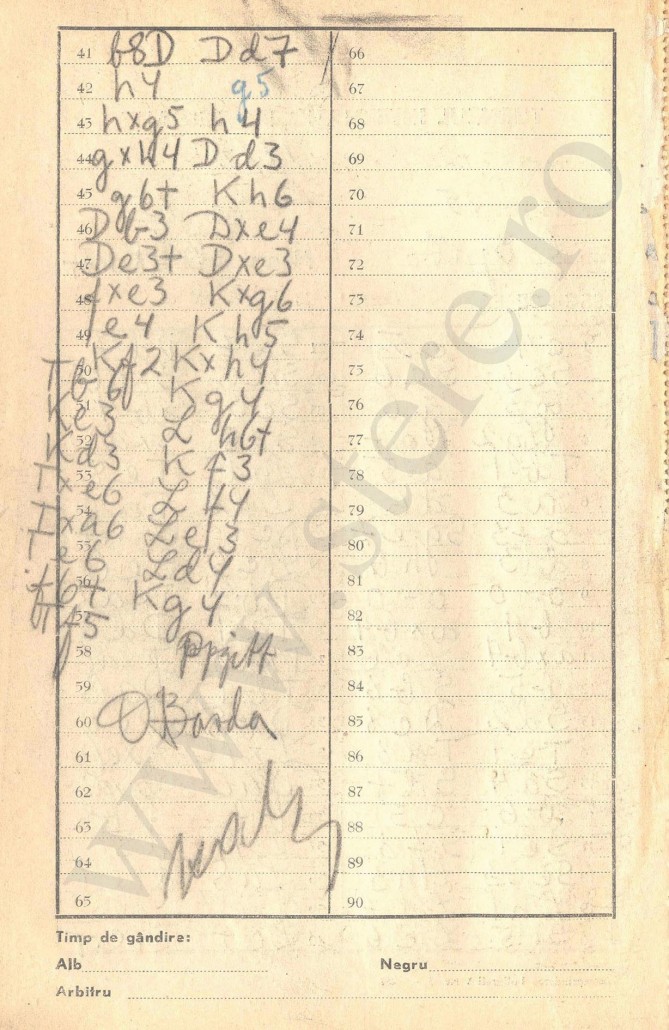 41 b8D Dd7
42 h4 g5
43 hxg5 h4
44 gxh4 Dd3
45 g6+ Kh6
46 Db3 Dxe4
47 De3+ Dxe3
48 fxe3 Kxg6
49 e4 Kh5
50 Kf2 Kxh4
51 Tb6 Kg4
52 Ke3 L h6+
53 Kd3 Kf3
54 Txe6 Lf4
55 Txa6 Le3
56 Te6 Ld4
57 f6+ Kg4
58 Tf5
59
60 O Barda
61
62
63
64
65
66
67
68
69
70
71
72
73
74
75
76
77
78
79
80
81
82
83
84
85
86
87
88
89
90
Timp de gândire:
Alb
Negru
Arbitru
www.stere.ro